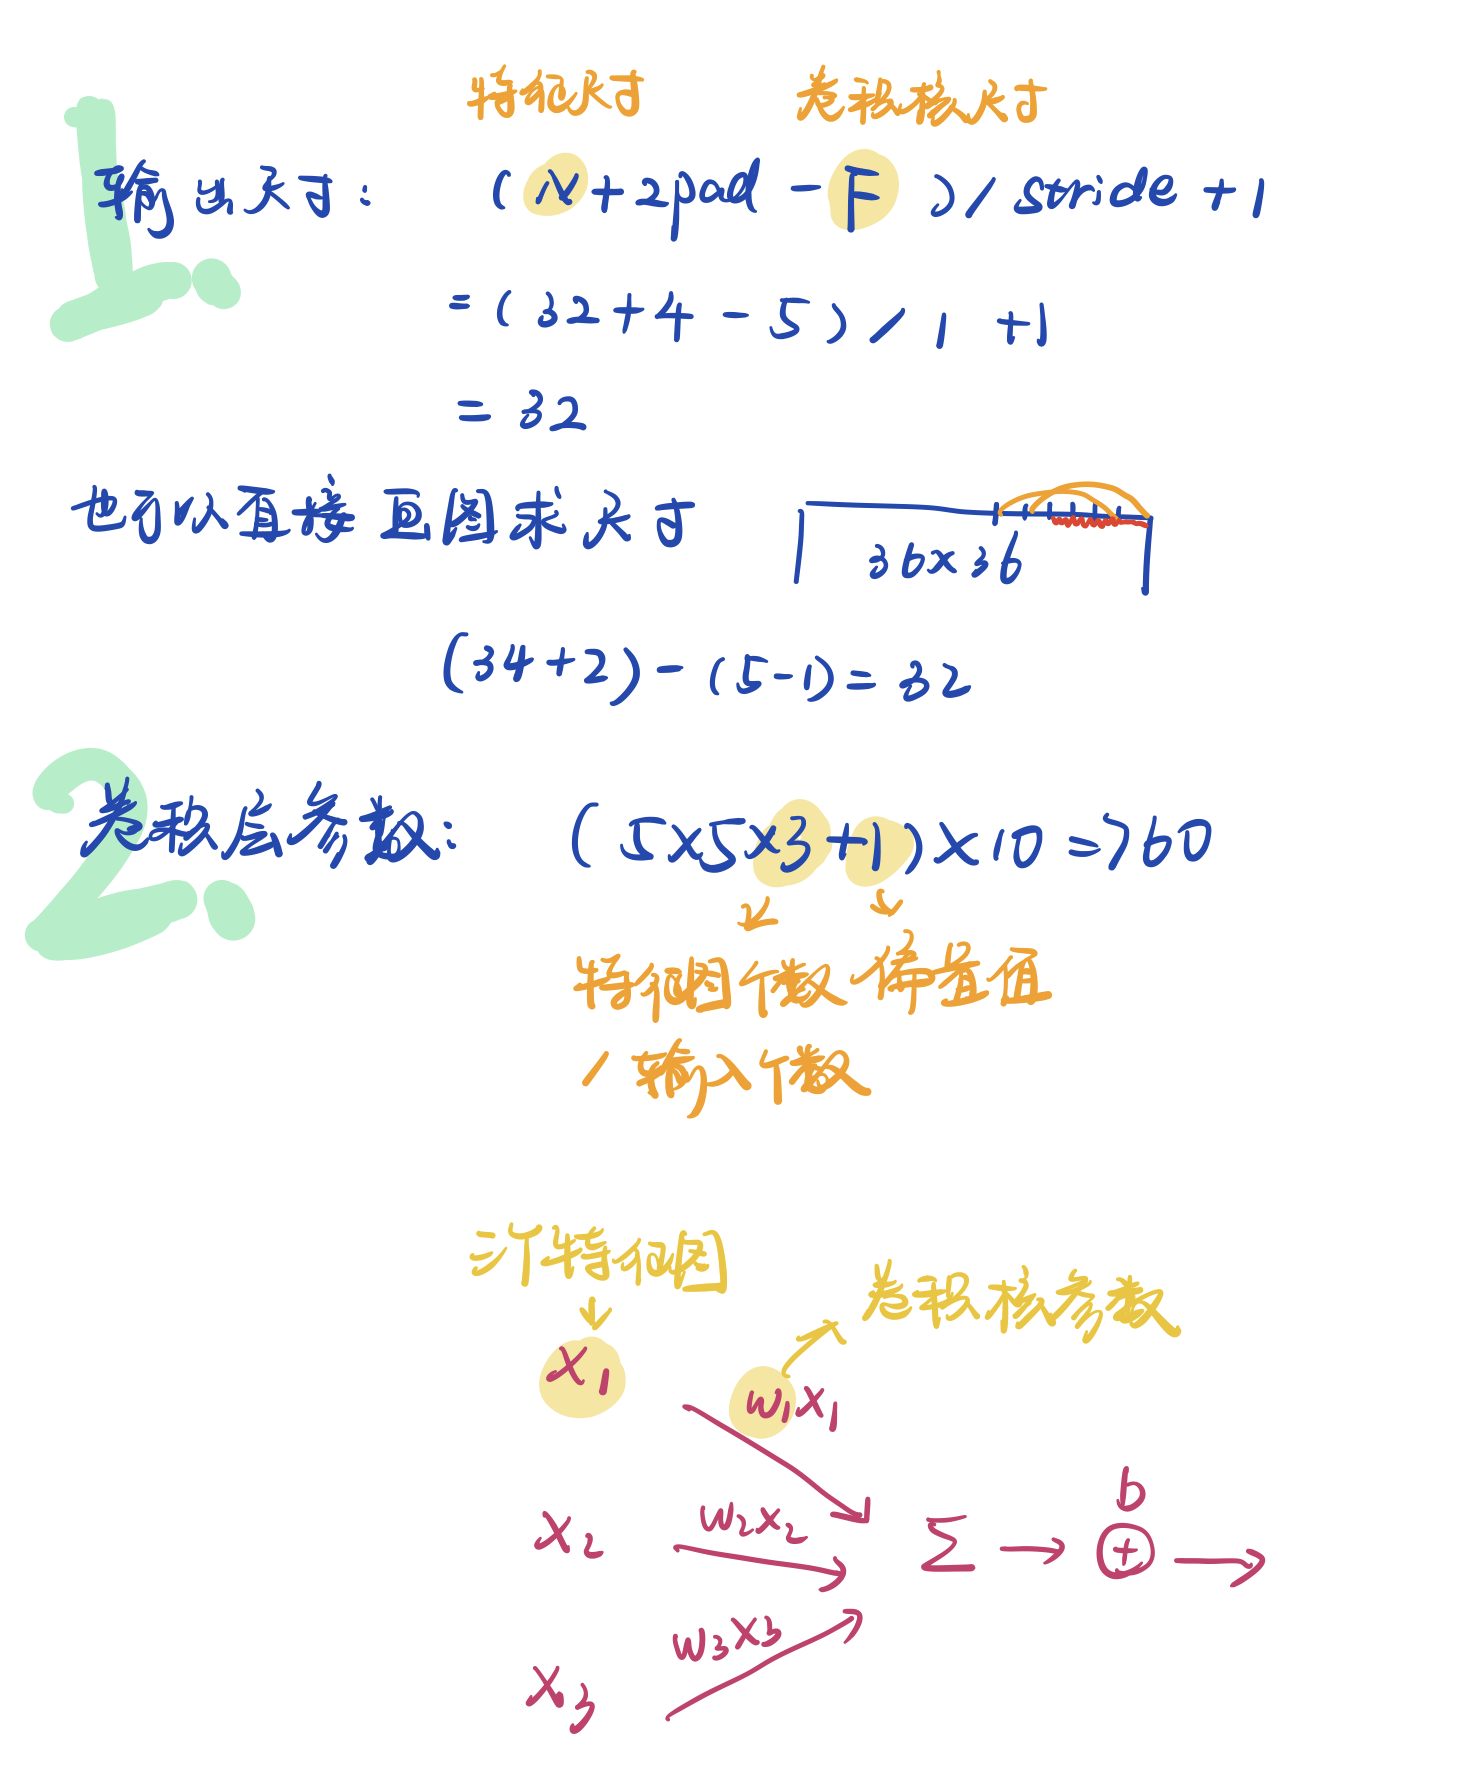 1.
特征尺寸 卷积核尺寸
输出尺寸: (N+2pad-F)/stride+1
=(32+4-5)/1+1
=32
也可以直接画图求尺寸
36×36
(34+2)-(5-1)=32
2.
卷积层参数: (5×5×3+1)×10=760
特征图个数 偏置值
/输入个数
三个特征图
卷积核参数
x₁
w₁x₁
b
x₂ w₂x₂ Σ → ⊕ →
w₃x₃
x₃